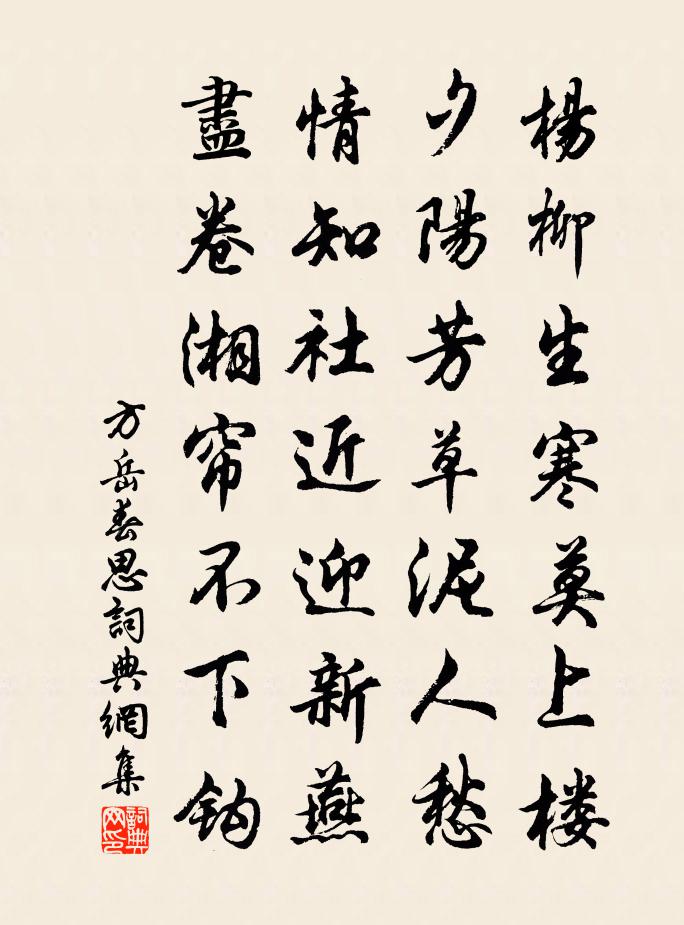 楊柳生寒莫上楼
夕陽芳草泥人愁
情知社近迎新燕
盡卷湘帘不下鈎
方岳春思詞典網集
詞典网印